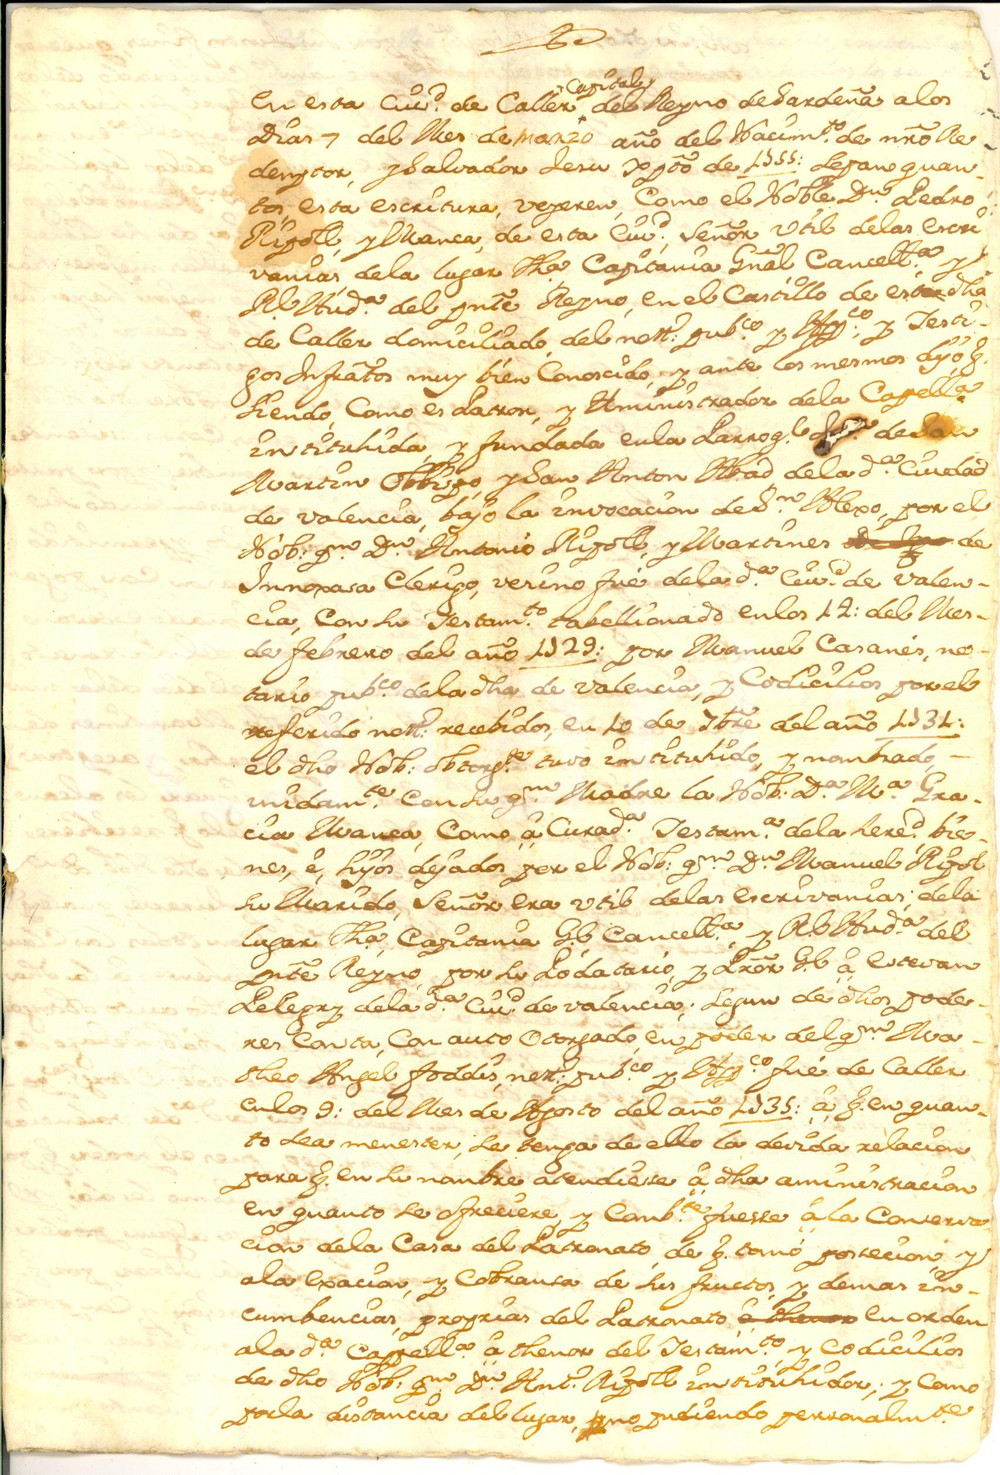 Capital
En esta Ciud. de Caller del Reyno de Sardeña a los
Dias 7 del Mes de Marzo año del Nacimto. de nro Re
demptor, y Salvador Jesu Xpto de 1755: Sepan quan-
tos esta escritura, veyeren, Como el Noble Dn. Pedro
Ripoll, y Manca, de esta Ciud. Señor Vtil de las Escri
vanias, de la lugar Tha. Capitania Gnãl Cancella. y
Rl. Auda. del pnte Reyno, en el Castillo de dha
de Caller domiciliado, del nott. pubco. y y Testi-
gos Infratos muy bien Conoscido, y ante los mesmos dijo q.
siendo, Como es Patron, y Aministrador de la Capella.
instituhida, y fundada en la Parrogl. de San
Martin Obbispo, y San Anton Abad de la da. Ciudad
de Valencia, bajo la invocacion de Sn. Alexo, por el
Nob: qm. Dn. Antonio Ripoll, y Martines de
Clerigo, vesino fue de la da. Ciud. de Valen-
cia, Con su Testamto. tabellionado en los 12: del Mes-
de febrero del año 1729: por Manuel Casanés, no-
tario pubco. de la dha de Valencia, y Codicilios por el
referido nott. recebidos, en 10 de 7bre del año 1731:
el dho Nob: obtorgte. tuvo instituhido, y nombrado,-
unidamte. Con su qm. Madre la Nob: Da. Ma. Gra-
cia Manca, Como, â Curada. Testama. de la hered. bie-
nes, è, hijos dejados por el Nob: qm. Dn. Manuel Ripoll
su Marido, Señor era Vtil de las escrivanias, de la
lugar Tha, Capitania Gl. Cancella. y Rl. Auda. del
pnte Reyno, por su Podatario, y Prõr Gl. â Estevan
Pelegry de la da. Ciud. de Valencia; Segun de dhos pode-
res Consta, Con auto Otorgado, en poder del qm. Ma-
theo Angel Foddis, nott. pubco. y fué de Caller
en los 9: del Mes de Agosto del año 1735: â q. en quan-
to sea menester, se tenga de ello la devida relacion
para q. en su nombre atendiese â dha aministracion
en quanto se ofreciere, y Combte. fuesse â la Conserva
cion de la Casa del Patronato, de q. tomó possecion, y
a la Exacion, y Cobransa de sus fructos, y demas in-
cumbencias, proprias del Patronato en orden
a la da. Capella. â thenor del Testamto. y Codicilios
de dho Nob: qm. Dn. Ant. Ripoll instituhidor; y Como
por la distancia del lugar, no pudiendo personalmte.